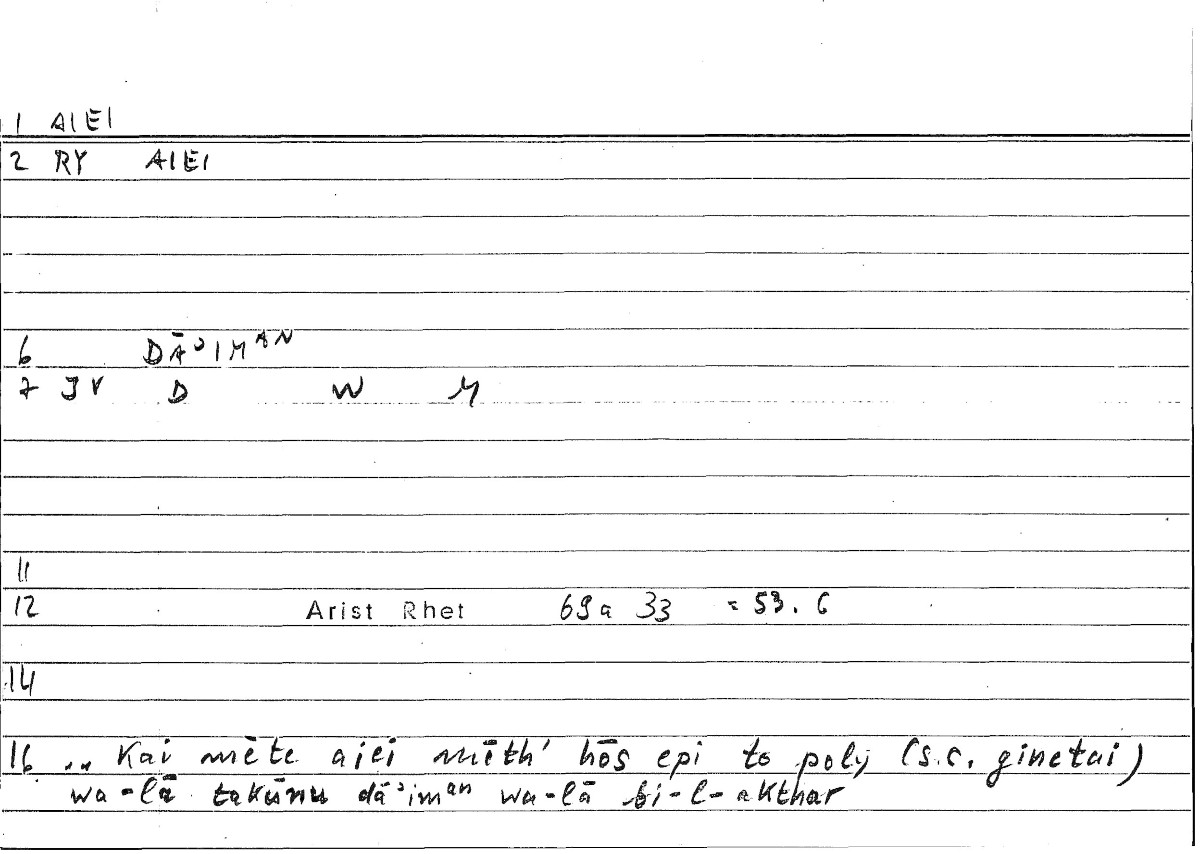 1 AIEI
2 RY AIEI
6 DĀʾIMAN
7 IV D W M
11
12 Arist Rhet 69a 33 = 53.6
14
16 .. Kai mēte aiei mēth' hōs epi to poly (s.c. ginetai)
wa-lā takūnu dāʾiman wa-lā bi-l-akthar